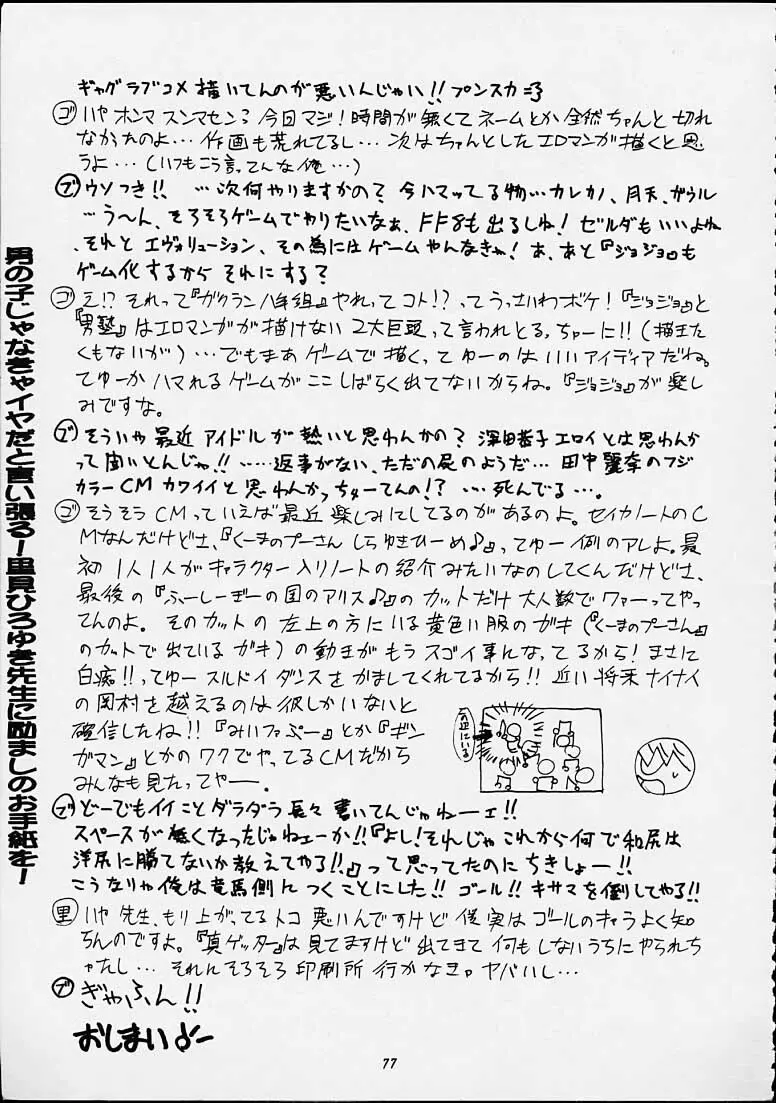 ギャグラブコメ描いてんのが悪いんじゃい!!プンスカ=3
ゴ いやホンマスンマセン?今日マジ!時間が無くてネームとか全然ちゃんと切れ
なかったのよ…作画も荒れてるし…次はちゃんとしたエロマンガ描くと思
うよ…(いつもこう言ってんな俺…)
ブ ウソつき!!…次何やりますかの?今ハマッてる物…カレカノ、月天、ガウル
…う〜ん、そろそろゲームでやりたいなぁ、FF8も出るしね!ゼルダもいいよね
、それとエヴォリューション、その為にはゲームやんなきゃ!あ、あと『ジョジョ』も
ゲーム化するからそれにする?
ゴ え!?それって『ガクラン八年組』やれってコト!?ってうっさいわボケ!『ジョジョ』と
『男塾』はエロマンガが描けない2大巨頭って言われとる,ちゅーに!!(描きた
くもないが)…でもまあゲームで描くってゆーのはいいアイディアだね。
てゆーかハマれるゲームがここしばらく出てないからね。『ジョジョ』が楽し
みですな。
ブ そういや最近アイドルが熱いと思わんかの?深田恭子エロイとは思わんか
って聞いとんじゃ!!……返事がない、ただの屍のようだ…田中麗奈のフジ
カラーCMカワイイと思わんかっちゅーてんの!?…死んでる…。
ゴ そうそうCMっていえば最近楽しみにしてるのがあるのよ。セイカノートのC
Mなんだけどさ、『くーまのプーさんしらゆきひーめ♪』ってゆー例のアレよ。最
初1人1人がキャラクター入りノートの紹介みたいなのしてくんだけどさ、
最後の『ふーしーぎーの国のアリス♪』のカットだけ大人数でワァーってやっ
てんのよ。そのカットの左上の方にいる黄色い服のガキ(『くーまのプーさん』
のカットで出ているガキ)の動きがもうスゴイ事になってるから!まさに
白痴!!ってゆースルドイダンスをかましてくれてるから!!近い将来ナイナイ
の岡村を越えるのは彼しかいないと
確信したね!!『みいファぷー』とか『ギン
ガマン』とかのワクでやってるCMだから
みんなも見たってやー。
この辺にいる
ブ どーでもイイことダラダラ長々書いてんじゃねーェ!!
スペースが無くなったじゃねェーか!!『よし!それじゃこれから何で和尻は
洋尻に勝てないか教えてやる!!』って思ってたのにちきしょー!!
こうなりゃ俺は竜馬側につくことにした!!ゴール!!キサマを倒してやる!!
里 いや先生、もり上がってるトコ悪いんですけど僕実はゴールのキャラよく知
らんのですよ。『真ゲッター』は見てますけど出てきて何もしないうちにやられち
ゃたし…それにそろそろ印刷所行かなきゃヤバいし…
ブ ぎゃふん!!
おしまい♪ー
男の子じゃなきゃイヤだと言い張る!里見ひろゆき先生に励ましのお手紙を!
77